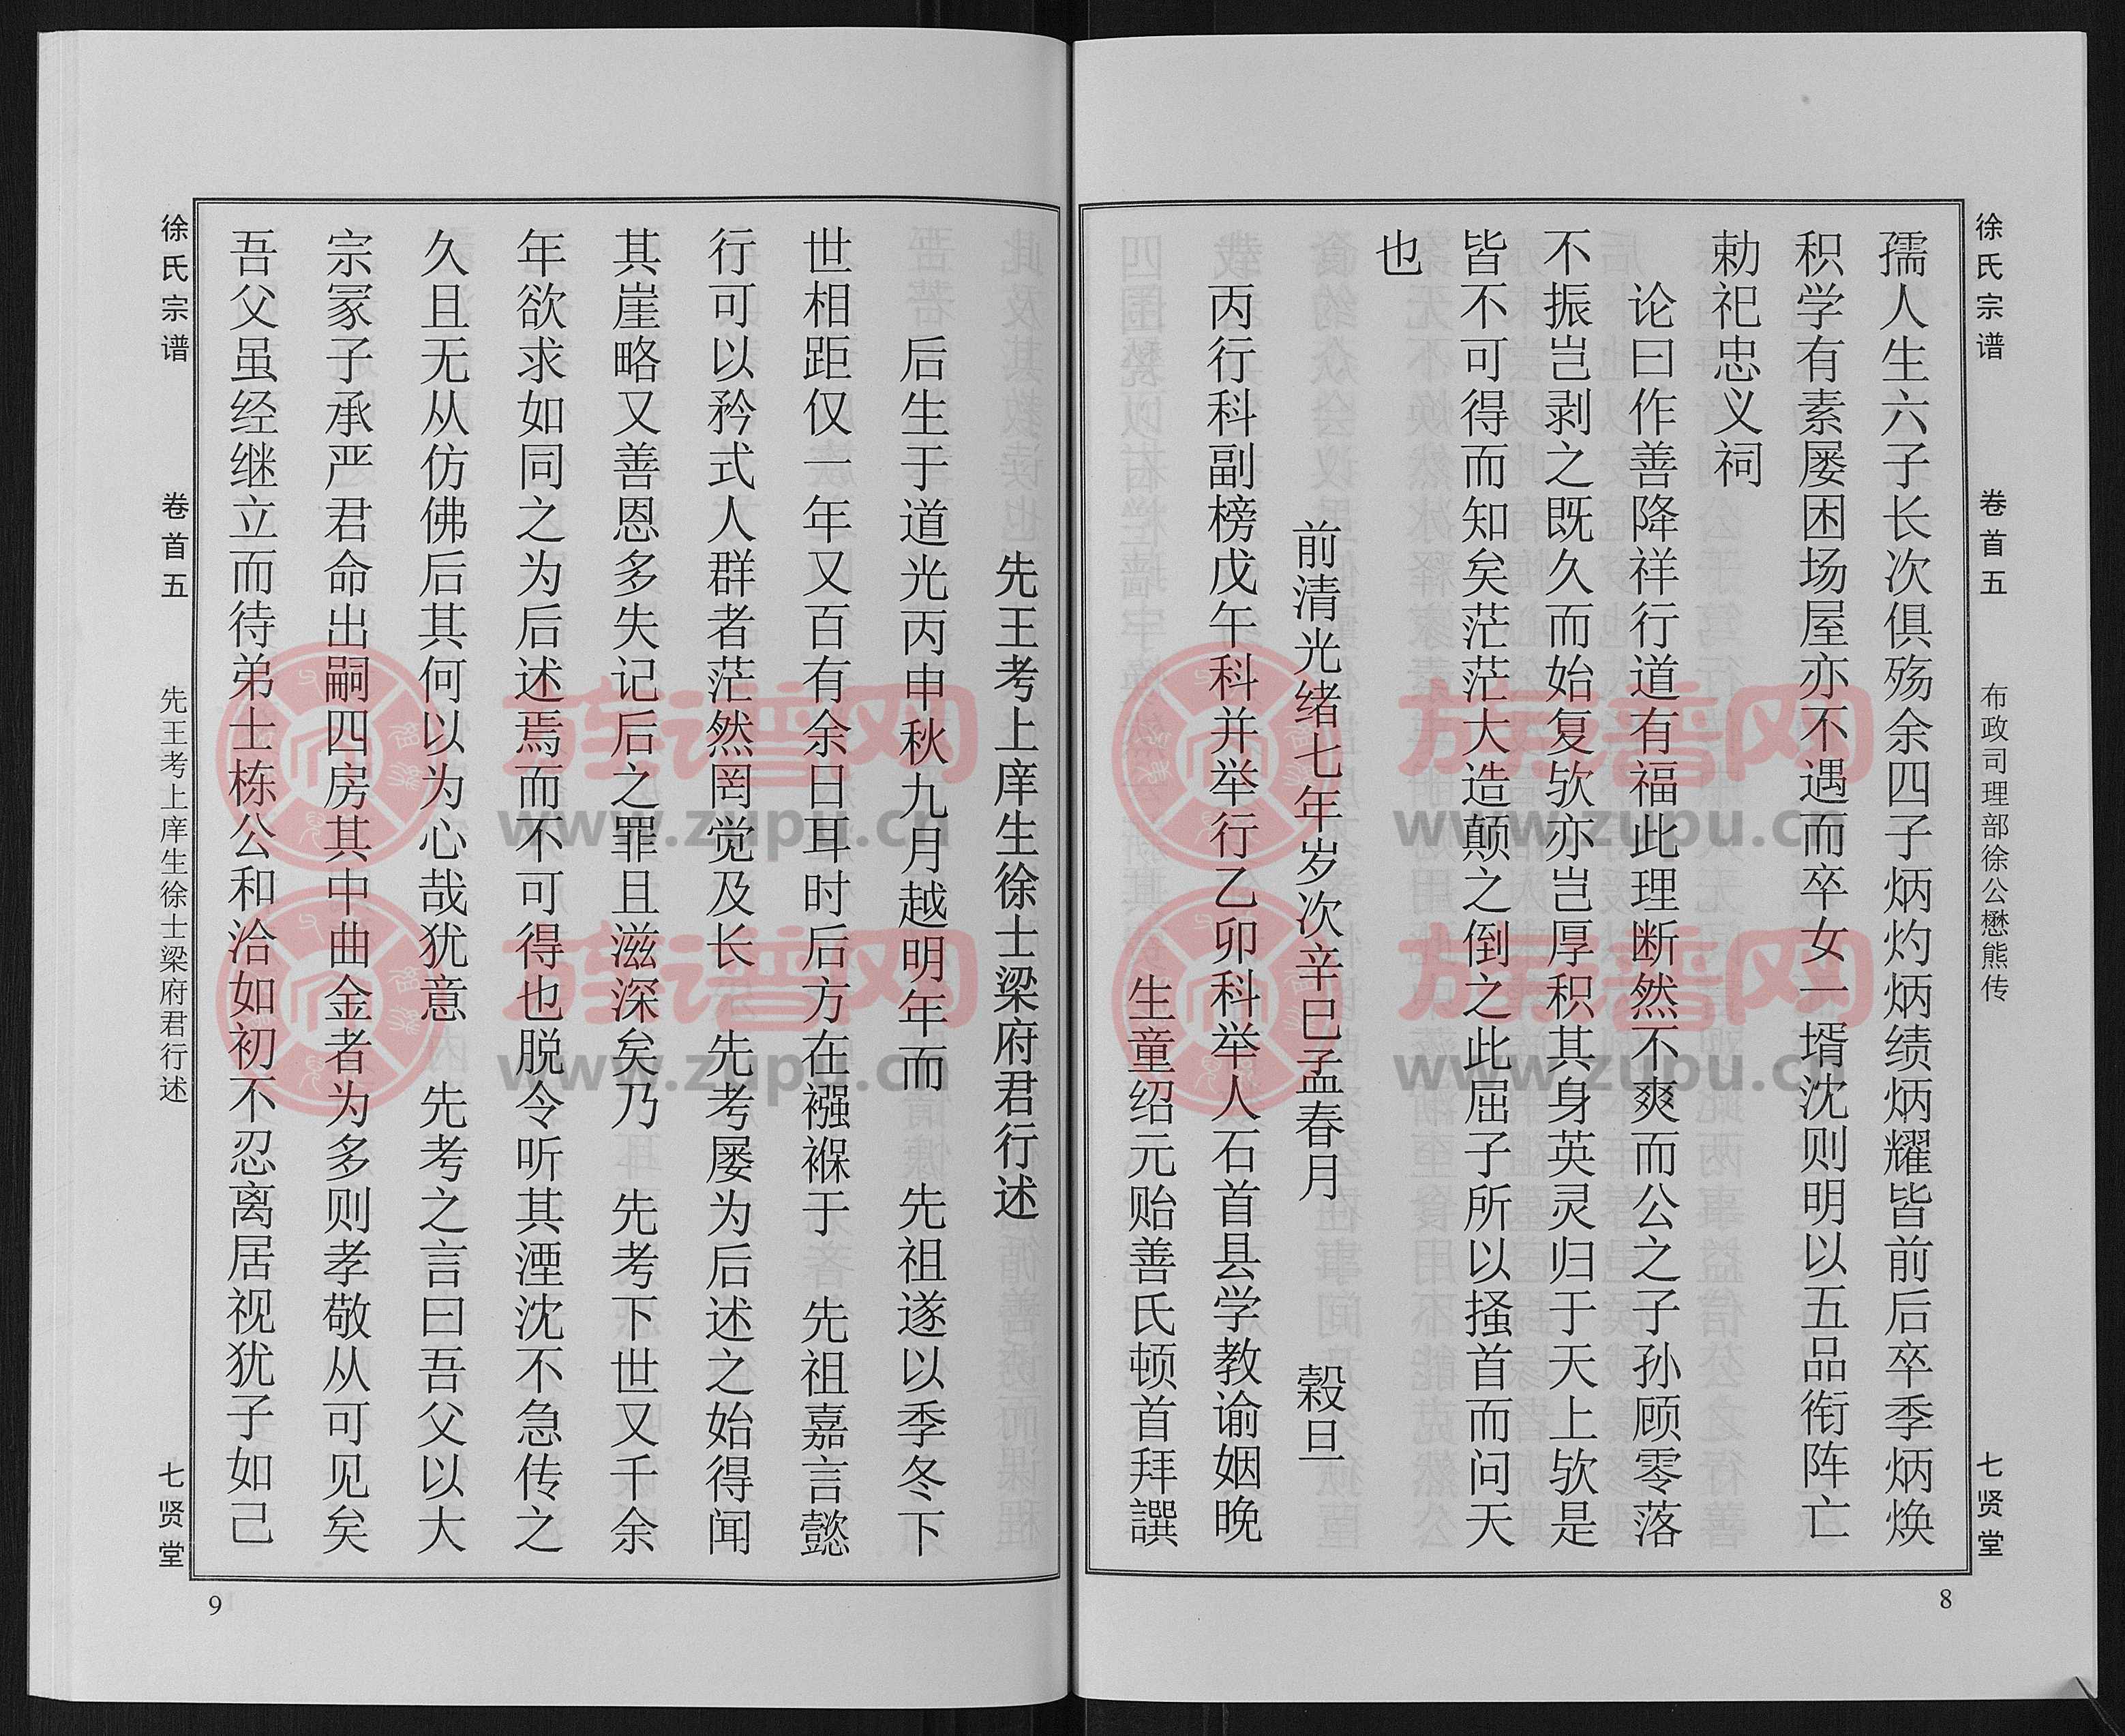 徐氏宗谱 卷首五 布政司理部徐公懋熊传 七贤堂
孺人生六子长次俱殇余四子炳灼炳绩炳耀皆前后卒季炳焕
积学有素屡困场屋亦不遇而卒女一壻沈则明以五品衔阵亡
勅祀忠义祠
论曰作善降祥行道有福此理断然不爽而公之子孙顾零落
不振岂剥之既久而始复欤亦岂厚积其身英灵归于天上欤是
皆不可得而知矣茫茫大造颠之倒之此屈子所以搔首而问天
也
前清光绪七年岁次辛巳孟春月 榖旦
丙行科副榜戊午科并举行乙卯科举人石首县学教谕姻晚
生童绍元贻善氏顿首拜譔
8
先王考上庠生徐士梁府君行述
后生于道光丙申秋九月越明年而 先祖遂以季冬下
世相距仅一年又百有余日耳时后方在襁褓于 先祖嘉言懿
行可以矜式人群者茫然罔觉及长 先考屡为后述之始得闻
其崖略又善恩多失记后之罪且滋深矣乃 先考下世又千余
年欲求如同之为后述焉而不可得也脱令听其湮沈不急传之
久且无从仿佛后其何以为心哉犹意 先考之言曰吾父以大
宗冢子承严君命出嗣四房其中曲金者为多则孝敬从可见矣
吾父虽经继立而待弟士栋公和洽如初不忍离居视犹子如己
徐氏宗谱 卷首五 先王考上庠生徐士梁府君行述 七贤堂
9
族谱网
www.zupu.cn
族谱网
www.zupu.cn
族谱网
www.zupu.cn
族谱网
www.zupu.cn